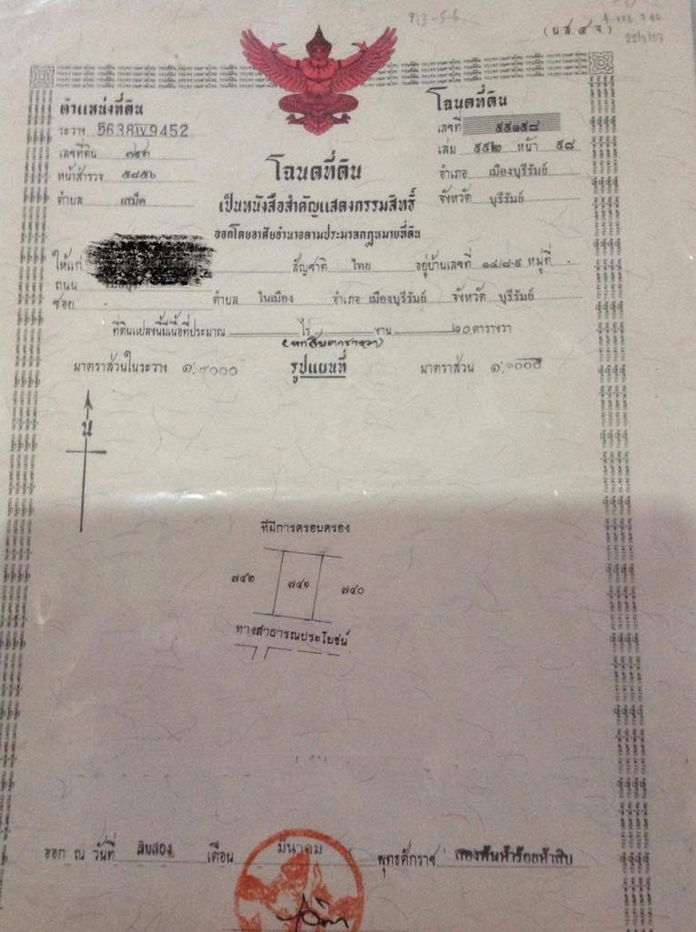 ๑13-5-6
(น.ส.๔ จ.)
ตำแหน่งที่ดิน
ระวาง 5638 IV 9452
เลขที่ดิน ๗๔๑
หน้าสำรวจ ๕๘๕๖
ตำบล เสม็ด
โฉนดที่ดิน
เลขที่ ๕๕๑๕๘
เล่ม ๕๕๒ หน้า ๕๘
อำเภอ เมืองบุรีรัมย์
จังหวัด บุรีรัมย์
โฉนดที่ดิน
เป็นหนังสือสำคัญแสดงกรรมสิทธิ์
ออกโดยอาศัยอำนาจตามประมวลกฎหมายที่ดิน
ให้แก่ สัญชาติ ไทย อยู่บ้านเลขที่ ๑๘/๘-๙ หมู่ที่ -
ถนน
ซอย - ตำบล ในเมือง อำเภอ เมืองบุรีรัมย์ จังหวัด บุรีรัมย์
ที่ดินแปลงนี้มีเนื้อที่ประมาณ ไร่ งาน ๖๐ ตารางวา
(หกสิบตารางวา)
มาตราส่วนในระวาง ๑:๑๐๐๐ รูปแผนที่ มาตราส่วน ๑:๑๐๐๐
น
ที่มีการครอบครอง
๗๔๒ ๗๔๑ ๗๔๐
ทางสาธารณประโยชน์
ออก ณ วันที่ สิบสอง เดือน มีนาคม พุทธศักราช สองพันห้าร้อยห้าสิบ